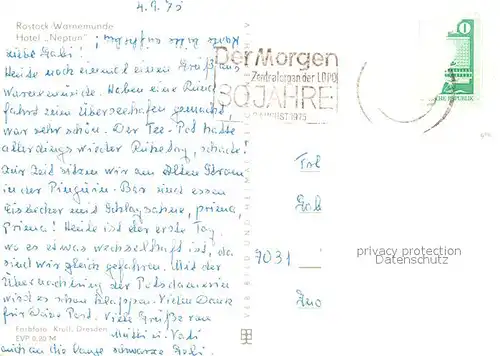 4.9.75
Rostock-Warnemünde
Hotel „Neptun"
Karte bitte aufheben!
Liebe Gabi!
Heute noch einmal einen Gruß aus
Warnemünde. Haben eine Rund
fahrt zum Überseehafen gemacht,
war sehr schön. Der Tee-Pott hatte
allerdings wieder Ruhetag, schade!
Zur Zeit sitzen wir am Alten Strom
in der Pinguin-Bar und essen
Eisbecher mit Schlagsahne, prima,
prima! Heute ist der erste Tag,
wo es etwas wechselhaft ist, da
sind wir gleich gefahren. Mit der
Übernachtung der Potsdamerin
wird es schon klappen. Vielen Dank
für Deine Post. Viele Grüße von
Mutti u. Vati
auch an die
schwarze Gabi.
Farbfoto: Krull, Dresden
EVP 0,20 M
VEB BILD UND HEIMAT
Der Morgen
Zentralorgan der LDPD
30 JAHRE
AUGUST 1975
Gab
7031
privacy protection
Datenschutz